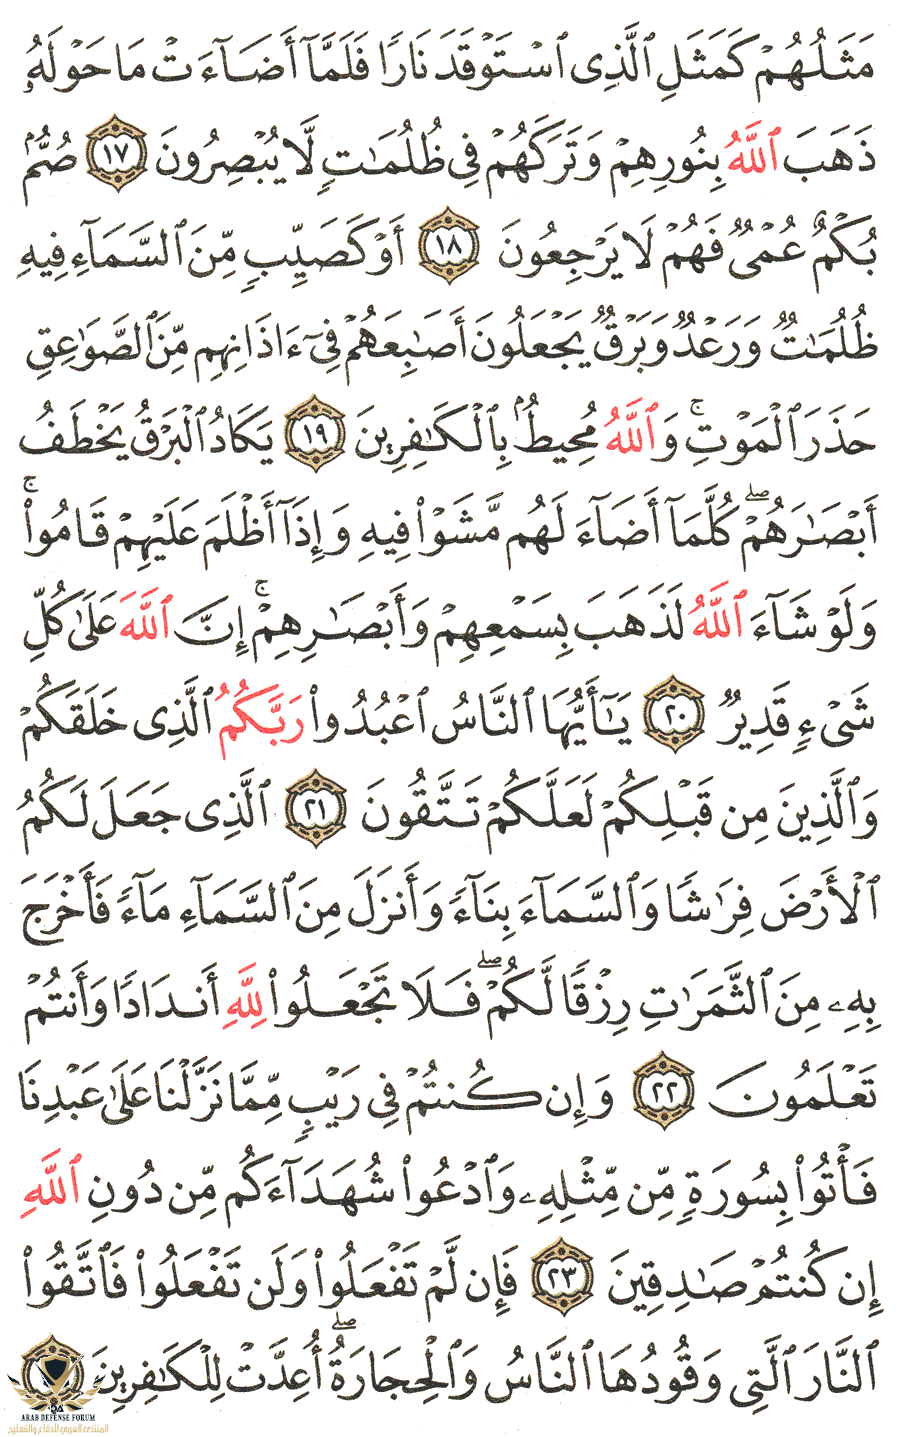 مَثَلُهُمْ كَمَثَلِ ٱلَّذِى ٱسْتَوْقَدَ نَارًا فَلَمَّآ أَضَآءَتْ مَا حَوْلَهُۥ
ذَهَبَ ٱللَّهُ بِنُورِهِمْ وَتَرَكَهُمْ فِى ظُلُمَٰتٍ لَّا يُبْصِرُونَ ١٧ صُمٌّۢ
بُكْمٌ عُمْىٌ فَهُمْ لَا يَرْجِعُونَ ١٨ أَوْ كَصَيِّبٍ مِّنَ ٱلسَّمَآءِ فِيهِ
ظُلُمَٰتٌ وَرَعْدٌ وَبَرْقٌ يَجْعَلُونَ أَصَٰبِعَهُمْ فِىٓ ءَاذَانِهِم مِّنَ ٱلصَّوَٰعِقِ
حَذَرَ ٱلْمَوْتِ ۚ وَٱللَّهُ مُحِيطٌۢ بِٱلْكَٰفِرِينَ ١٩ يَكَادُ ٱلْبَرْقُ يَخْطَفُ
أَبْصَٰرَهُمْ ۖ كُلَّمَآ أَضَآءَ لَهُم مَّشَوْا۟ فِيهِ وَإِذَآ أَظْلَمَ عَلَيْهِمْ قَامُوا۟ ۚ
وَلَوْ شَآءَ ٱللَّهُ لَذَهَبَ بِسَمْعِهِمْ وَأَبْصَٰرِهِمْ ۚ إِنَّ ٱللَّهَ عَلَىٰ كُلِّ
شَىْءٍ قَدِيرٌ ٢٠ يَٰٓأَيُّهَا ٱلنَّاسُ ٱعْبُدُوا۟ رَبَّكُمُ ٱلَّذِى خَلَقَكُمْ
وَٱلَّذِينَ مِن قَبْلِكُمْ لَعَلَّكُمْ تَتَّقُونَ ٢١ ٱلَّذِى جَعَلَ لَكُمُ
ٱلْأَرْضَ فِرَٰشًا وَٱلسَّمَآءَ بِنَآءً وَأَنزَلَ مِنَ ٱلسَّمَآءِ مَآءً فَأَخْرَجَ
بِهِۦ مِنَ ٱلثَّمَرَٰتِ رِزْقًا لَّكُمْ ۖ فَلَا تَجْعَلُوا۟ لِلَّهِ أَندَادًا وَأَنتُمْ
تَعْلَمُونَ ٢٢ وَإِن كُنتُمْ فِى رَيْبٍ مِّمَّا نَزَّلْنَا عَلَىٰ عَبْدِنَا
فَأْتُوا۟ بِسُورَةٍ مِّن مِّثْلِهِۦ وَٱدْعُوا۟ شُهَدَآءَكُم مِّن دُونِ ٱللَّهِ
إِن كُنتُمْ صَٰدِقِينَ ٢٣ فَإِن لَّمْ تَفْعَلُوا۟ وَلَن تَفْعَلُوا۟ فَٱتَّقُوا۟
ٱلنَّارَ ٱلَّتِى وَقُودُهَا ٱلنَّاسُ وَٱلْحِجَارَةُ ۖ أُعِدَّتْ لِلْكَٰفِرِينَ
ARAB DEFENSE FORUM
المنتدى العربي للدفاع والتسليح